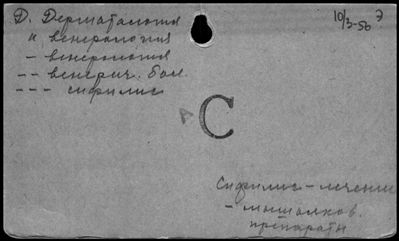 Д. Дерматология
и венерология
— венерология
—— венерич. бол.
——— сифилис
10/3-56 Э
А С
Сифилис – лечение
– мышьяков.
препараты